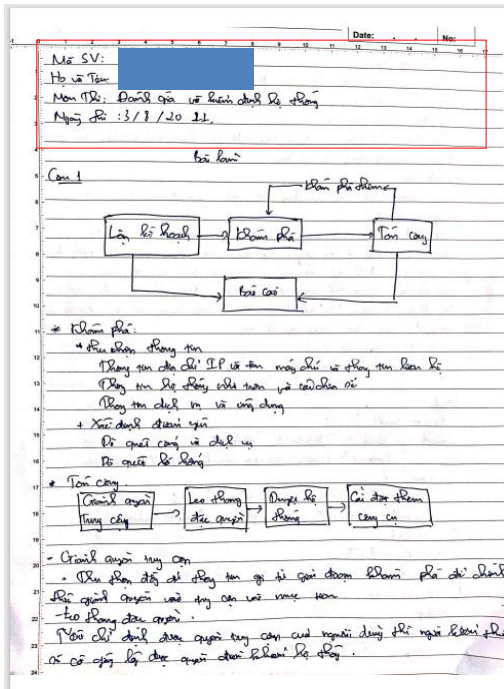 Date: . . No:
Mã SV:
Họ và Tên:
Môn Thi: Đánh giá và kiểm định hệ thống
Ngày thi: 3/8/20 21.
Bài làm
Câu 1
Khám phá thêm
Lập kế hoạch
Khám phá
Tấn công
Báo cáo
* Khám phá:
+ thu thập thông tin
Thông tin địa chỉ IP và tên máy chủ và thông tin liên hệ
Thông tin hệ thống như tên và chia sẻ
Thông tin dịch vụ và ứng dụng
+ Xác định điểm yếu
Dò quét cổng và dịch vụ
Dò quét lỗ hổng
* Tấn công
Giành quyền truy cập
Leo thang đặc quyền
Duyệt hệ thống
Cài đặt thêm công cụ
- Giành quyền truy cập
Thu thập đầy đủ thông tin từ giai đoạn khám phá để
giành quyền truy cập vào mục tiêu
- Leo thang đặc quyền.
Nếu chỉ định được quyền truy cập của người dùng thì người kiểm thử
sẽ cố gắng lấy được quyền hệ thống.